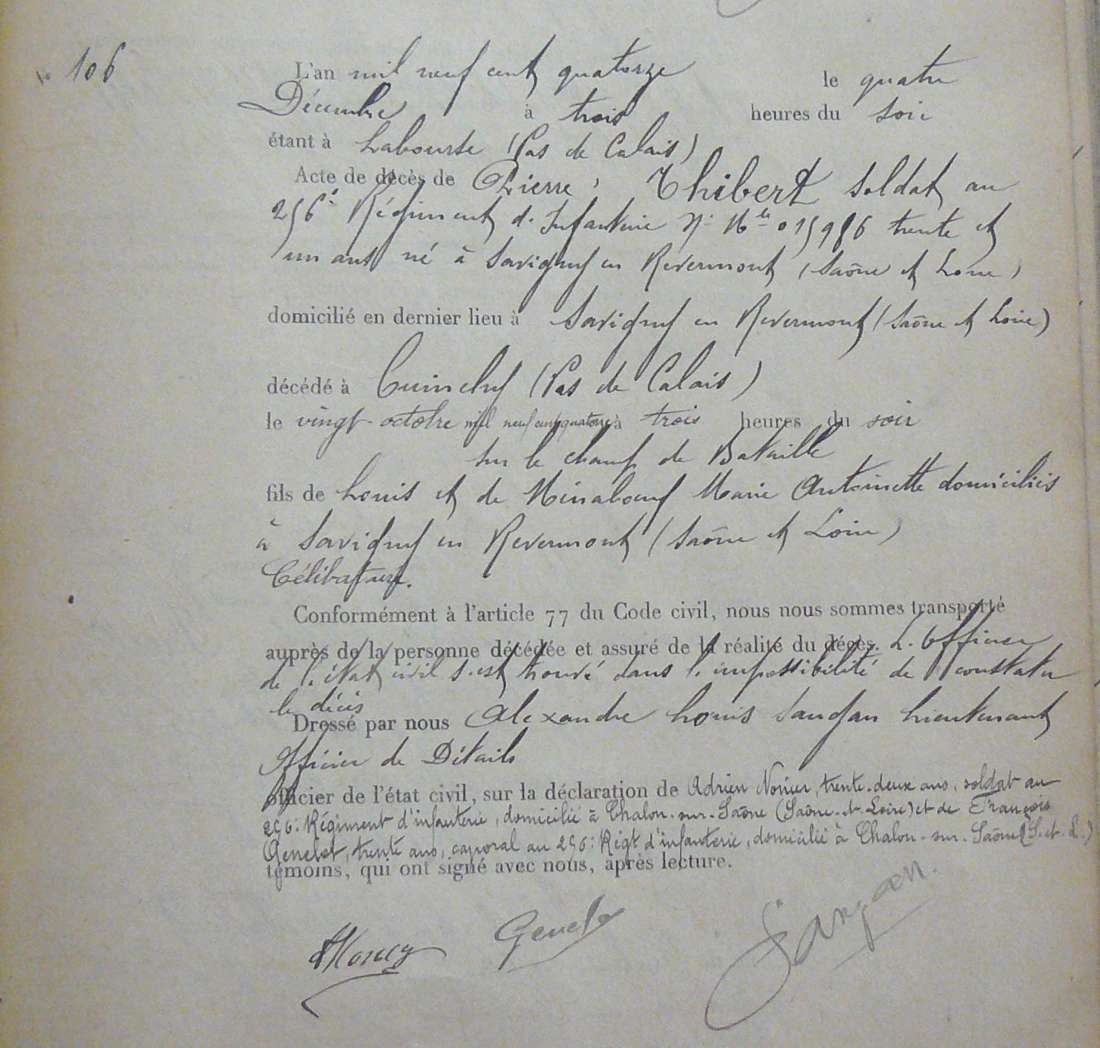 No 106
L'an mil neuf cent quatorze le quatre
Décembre à trois heures du soir
étant à Labourse (Pas de Calais)
Acte de décès de Pierre, Thibert soldat au
256e Régiment d'Infanterie No Mle 015986 trente et
un ans né à Savigny en Revermont (Saône et Loire)
domicilié en dernier lieu à Savigny en Revermont (Saône et Loire)
décédé à Cuinchy (Pas de Calais)
le vingt octobre mil neuf cent quatorze à trois heures du soir
sur le champ de Bataille
fils de Louis et de Marie Antoinette domiciliés
à Savigny en Revermont (Saône et Loire)
Célibataire.
Conformément à l'article 77 du Code civil, nous nous sommes transporté
auprès de la personne décédée et assuré de la réalité du décès. L'Officier
de l'état civil s'est trouvé dans l'impossibilité de constater
le décès
Dressé par nous Alexandre Louis Lieutenant
Officier de Détails
officier de l'état civil, sur la déclaration de Adrien trente-deux ans, soldat au
256e Régiment d'infanterie, domicilié à Chalon-sur-Saône (Saône-et-Loire) et de François
Genelet, trente ans, caporal au 256e Régt d'infanterie, domicilié à Chalon-sur-Saône (S.et.L.)
témoins, qui ont signé avec nous, après lecture.